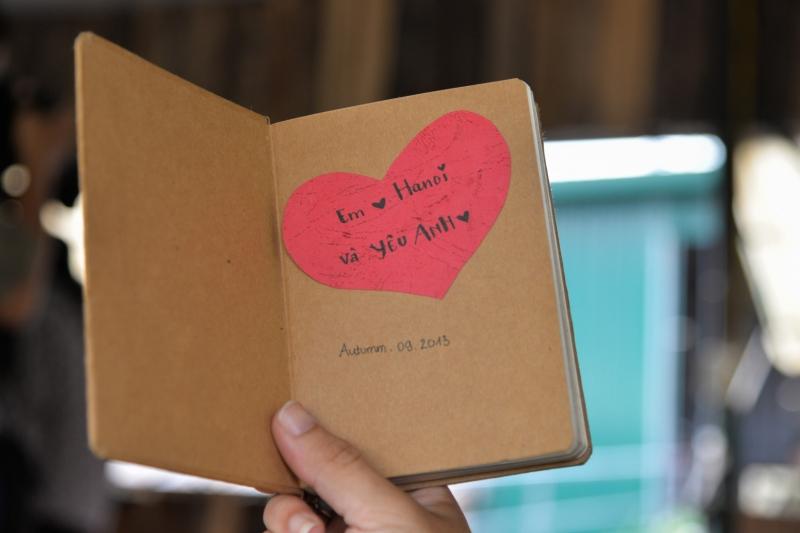 Em ♥ Hanoi
và yêu ANH ♥
Autumm. 09. 2013